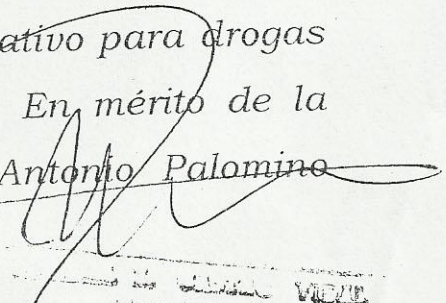 ativo para drogas
En mérito de la
Antonio Palomino